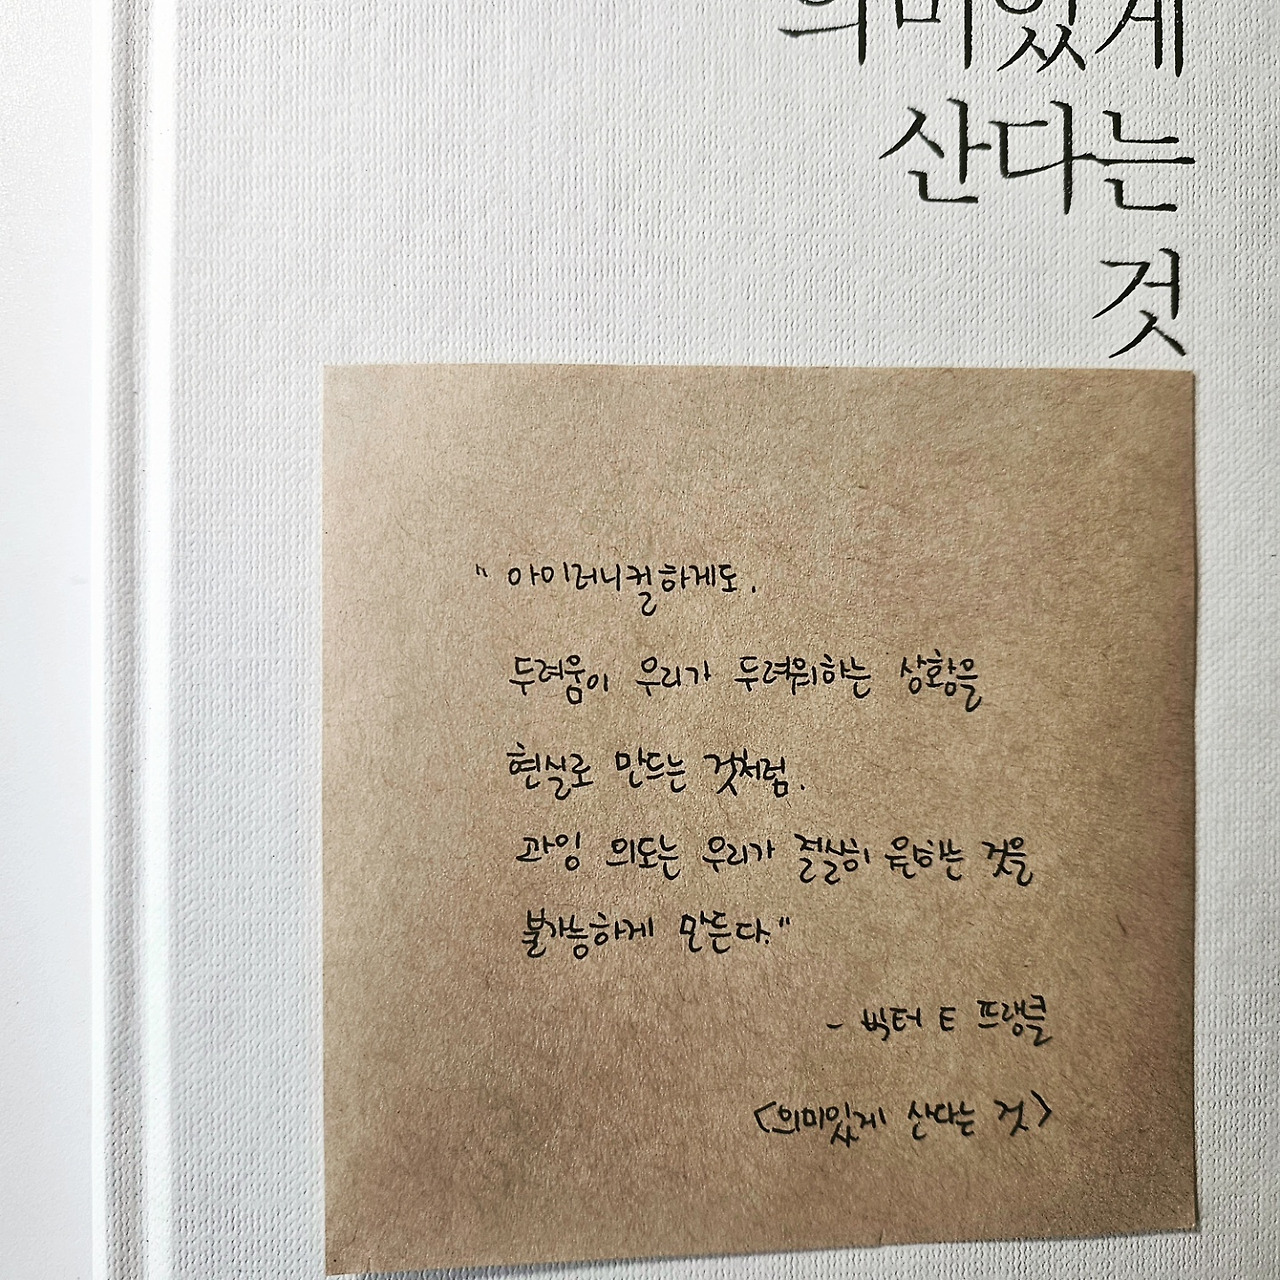 의미있게
산다는
것
" 아이러니컬하게도,
두려움이 우리가 두려워하는 상황을
현실로 만드는 것처럼,
과잉 의도는 우리가 절실히 원하는 것을
불가능하게 만든다."
- 빅터 E 프랭클
<의미있게 산다는 것>